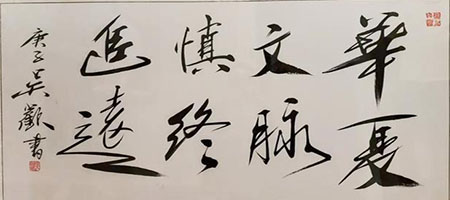 華夏
文脉
慎終
追遠
庚子吴歡書